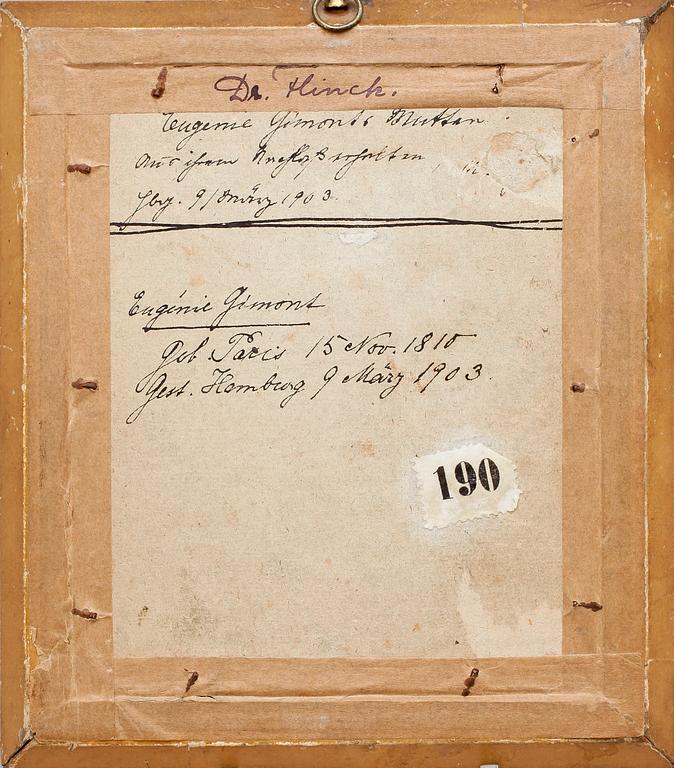 Dr. Flinck.
Eugenie Gimonts Mutter.
Aus ihrem Nachlaß erhalten
Hbg. 9/März 1903.
Eugénie Gimont
Geb. Paris 15 Nov. 1810
Gest. Hamburg 9 März 1903.
190